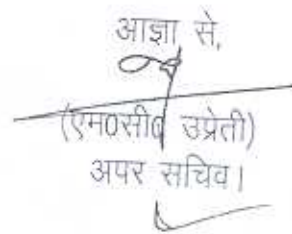 आज्ञा से,
(एम0सी0 उप्रेती)
अपर सचिव।